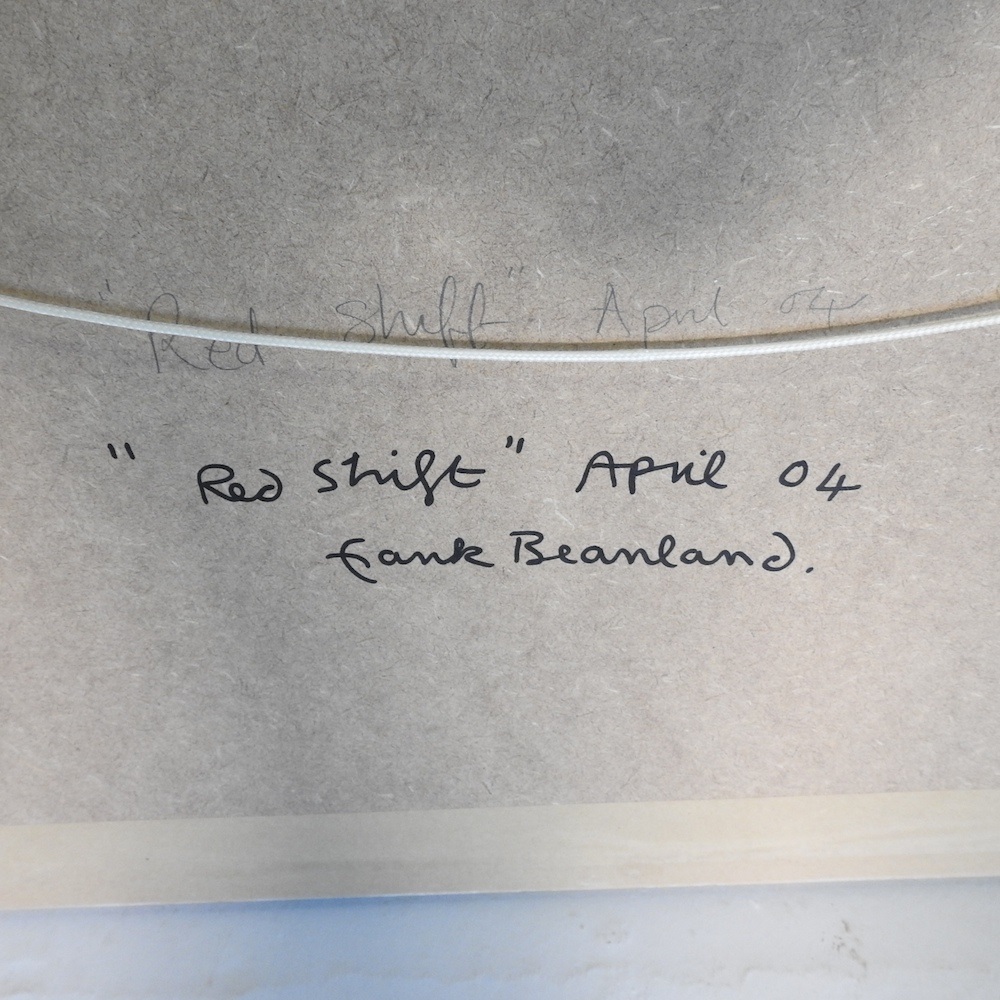 "Red Shift" April 04
"Red Shift" April 04
Frank Beanland.